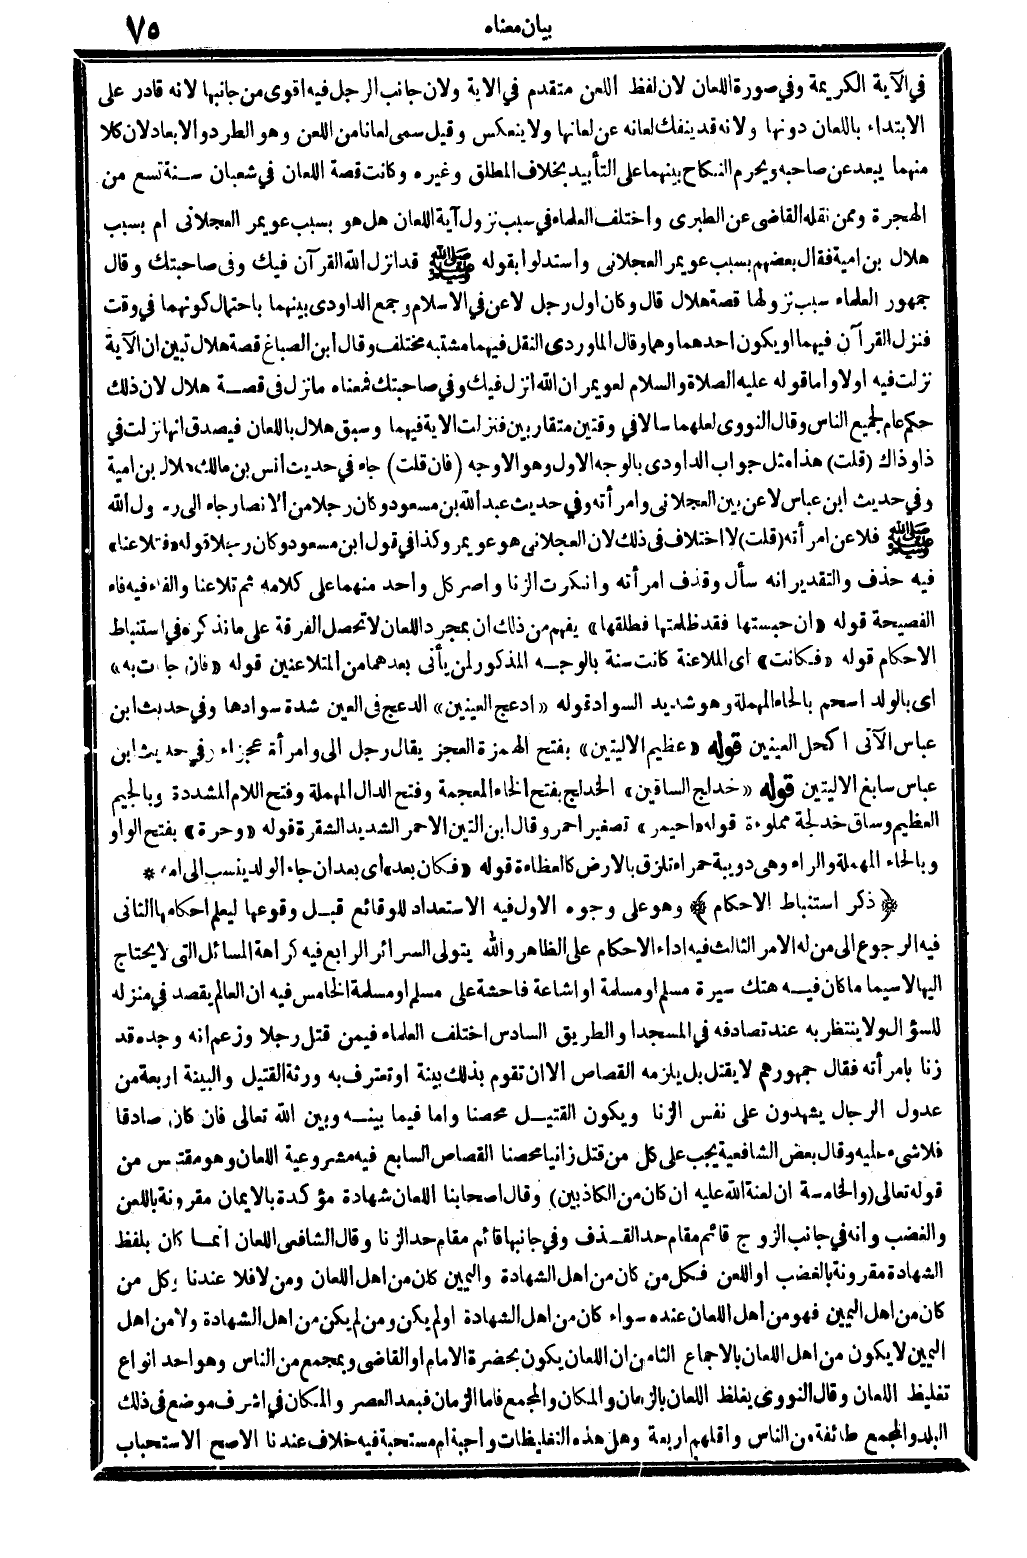 بيان معناه ٧٥
في الآية الكريمة وفي صورة اللعان لان لفظ اللعن متقدم في الاية ولان جانب الرجل فيه اقوى من جانبها لانه قادر على
الابتداء باللعان دونها ولانه قد ينفك لعانه عن لعانها ولا ينعكس وقيل سمى لعانا من اللعن وهو الطرد والابعاد لان كلا
منهما يبعد عن صاحبه ويحرم النكاح بينهما على التأبيد بخلاف المطلق وغيره وكانت قصة اللعان في شعبان سنة تسع من
الهجرة وممن نقله القاضى عن الطبرى واختلف العلماء في سبب نزول آية اللعان هل هو بسبب عويمر العجلانى ام بسبب
هلال بن امية فقال بعضهم بسبب عويمر العجلانى واستدلوا بقوله ﷺ قد انزل الله القرآن فيك وفى صاحبتك وقال
جمهور العلماء سبب نزولها قصة هلال قال وكان اول رجل لاعن في الاسلام وجمع الداودى بينهما باحتمال كونهما في وقت
فنزل القرآن فيهما او يكون احدهما وهما وقال الماوردى النقل فيهما مشتبه مختلف وقال ابن الصباغ قصة هلال تبين ان الآية
نزلت فيه اولا واما قوله عليه الصلاة والسلام لعويمر ان الله انزل فيك وفي صاحبتك فمعناه ما نزل فى قصة هلال لان ذلك
حكم عام لجميع الناس وقال النووى لعلهما سالا في وقتين متقاربين فنزلت الاية فيهما وسبق هلال باللعان فيصدق انها نزلت في
ذا وذاك (قلت) هذا مثل جواب الداودى بالوجه الاول وهو الاوجه (فان قلت) جاء في حديث انس بن مالك هلال بن امية
وفي حديث ابن عباس لاعن بين العجلانى وامرأته وفي حديث عبد الله بن مسعود وكان رجلا من الانصار جاء الى رسول الله
ﷺ فلاعن امرأته (قلت) لا اختلاف فى ذلك لان العجلانى هو عويمر وكذا في قول ابن مسعود وكان رجلا قوله «فتلاعنا»
فيه حذف والتقدير انه سأل وقذف امرأته وانكرت الزنا واصر كل واحد منهما على كلامه ثم تلاعنا والفاء فيه فاء
الفصيحة قوله «ان حبستها فقد ظلمتها فطلقها» يفهم من ذلك ان بمجرد اللعان لا تحصل الفرقة على ما نذكره في استنباط
الاحكام قوله «فكانت» اى الملاعنة كانت سنة بالوجه المذكور لمن يأتى بعدهما من المتلاعنين قوله «فان جاءت به»
اى بالولد اسحم بالحاء المهملة وهو شديد السواد قوله «ادعج العينين» الدعج فى العين شدة سوادها وفي حديث ابن
عباس الآتى اكحل العينين قوله «عظيم الاليتين» بفتح الهمزة العجز يقال رجل الى وامرأة عجزاء وفي حديث ابن
عباس سابغ الاليتين قوله «خدلج الساقين» الخدلج بفتح الخاء المعجمة وفتح الدال المهملة وفتح اللام المشددة وبالجيم
العظيم وساق خدلجة مملوءة قوله «احيمر» تصغير احمر وقال ابن التين الاحمر الشديد الشقرة قوله «وحرة» بفتح الواو
وبالحاء المهملة والراء وهى دويبة حمراء تلزق بالارض كالعظاءة قوله «فكان بعد» اى بعد ان جاء الولد ينسب الى امه *
﴿ ذكر استنباط الاحكام ﴾ وهو على وجوه الاول فيه الاستعداد للوقائع قبل وقوعها ليعلم احكامها الثانى
فيه الرجوع الى من له الامر الثالث فيه اداء الاحكام على الظاهر والله يتولى السرائر الرابع فيه كراهة المسائل التى لا يحتاج
اليها لاسيما ما كان فيه هتك سيرة مسلم او مسلمة او اشاعة فاحشة على مسلم او مسلمة الخامس فيه ان العالم يقصد في منزله
للسؤال ولا ينتظر به عند تصادفه في المسجد او الطريق السادس اختلف العلماء فيمن قتل رجلا وزعم انه وجده قد
زنا بامرأته فقال جمهورهم لا يقتل بل يلزمه القصاص الا ان تقوم بذلك بينة او تعترف به ورثة القتيل والبينة اربعة من
عدول الرجال يشهدون على نفس الزنا ويكون القتيل محصنا واما فيما بينه وبين الله تعالى فان كان صادقا
فلا شىء عليه وقال بعض الشافعية يجب على كل من قتل زانيا محصنا القصاص السابع فيه مشروعية اللعان وهو مقتبس من
قوله تعالى (والخامسة ان لعنة الله عليه ان كان من الكاذبين) وقال اصحابنا اللعان شهادة مؤكدة بالايمان مقرونة باللعن
والغضب وانه في جانب الزوج قائم مقام حد القذف وفي جانبها قائم مقام حد الزنا وقال الشافعى اللعان انما كان بلفظ
الشهادة مقرونة بالغضب او اللعن فكل من كان من اهل الشهادة واليمين كان من اهل اللعان ومن لا فلا عندنا وكل من
كان من اهل اليمين فهو من اهل اللعان عنده سواء كان من اهل الشهادة او لم يكن ومن لم يكن من اهل الشهادة ولا من اهل
اليمين لا يكون من اهل اللعان بالاجماع الثامن ان اللعان يكون بحضرة الامام او القاضى وبمجمع من الناس وهو احد انواع
تغليظ اللعان وقال النووى يغلظ اللعان بالزمان والمكان والمجمع فاما الزمان فبعد العصر والمكان في اشرف موضع فى ذلك
البلد والمجمع طائفة من الناس واقلهم اربعة وهل هذه التغليظات واجبة ام مستحبة فيه خلاف عندنا الاصح الاستحباب